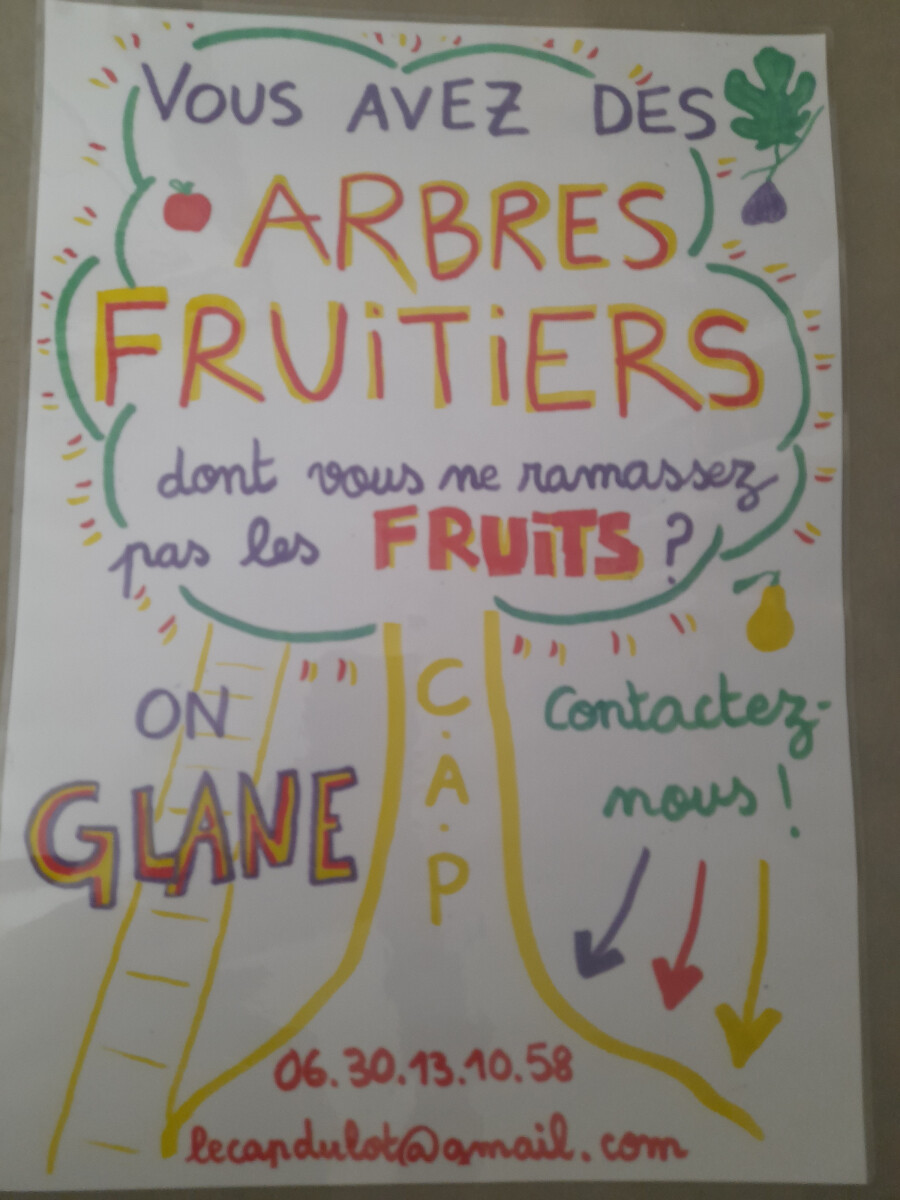 VOUS AVEZ DES
ARBRES
FRUiTiERS
dont vous ne ramassez
pas les FRUiTS ?
C.A.P
ON
GLANE
Contactez-
nous !
06.30.13.10.58
lecapdulot@gmail.com